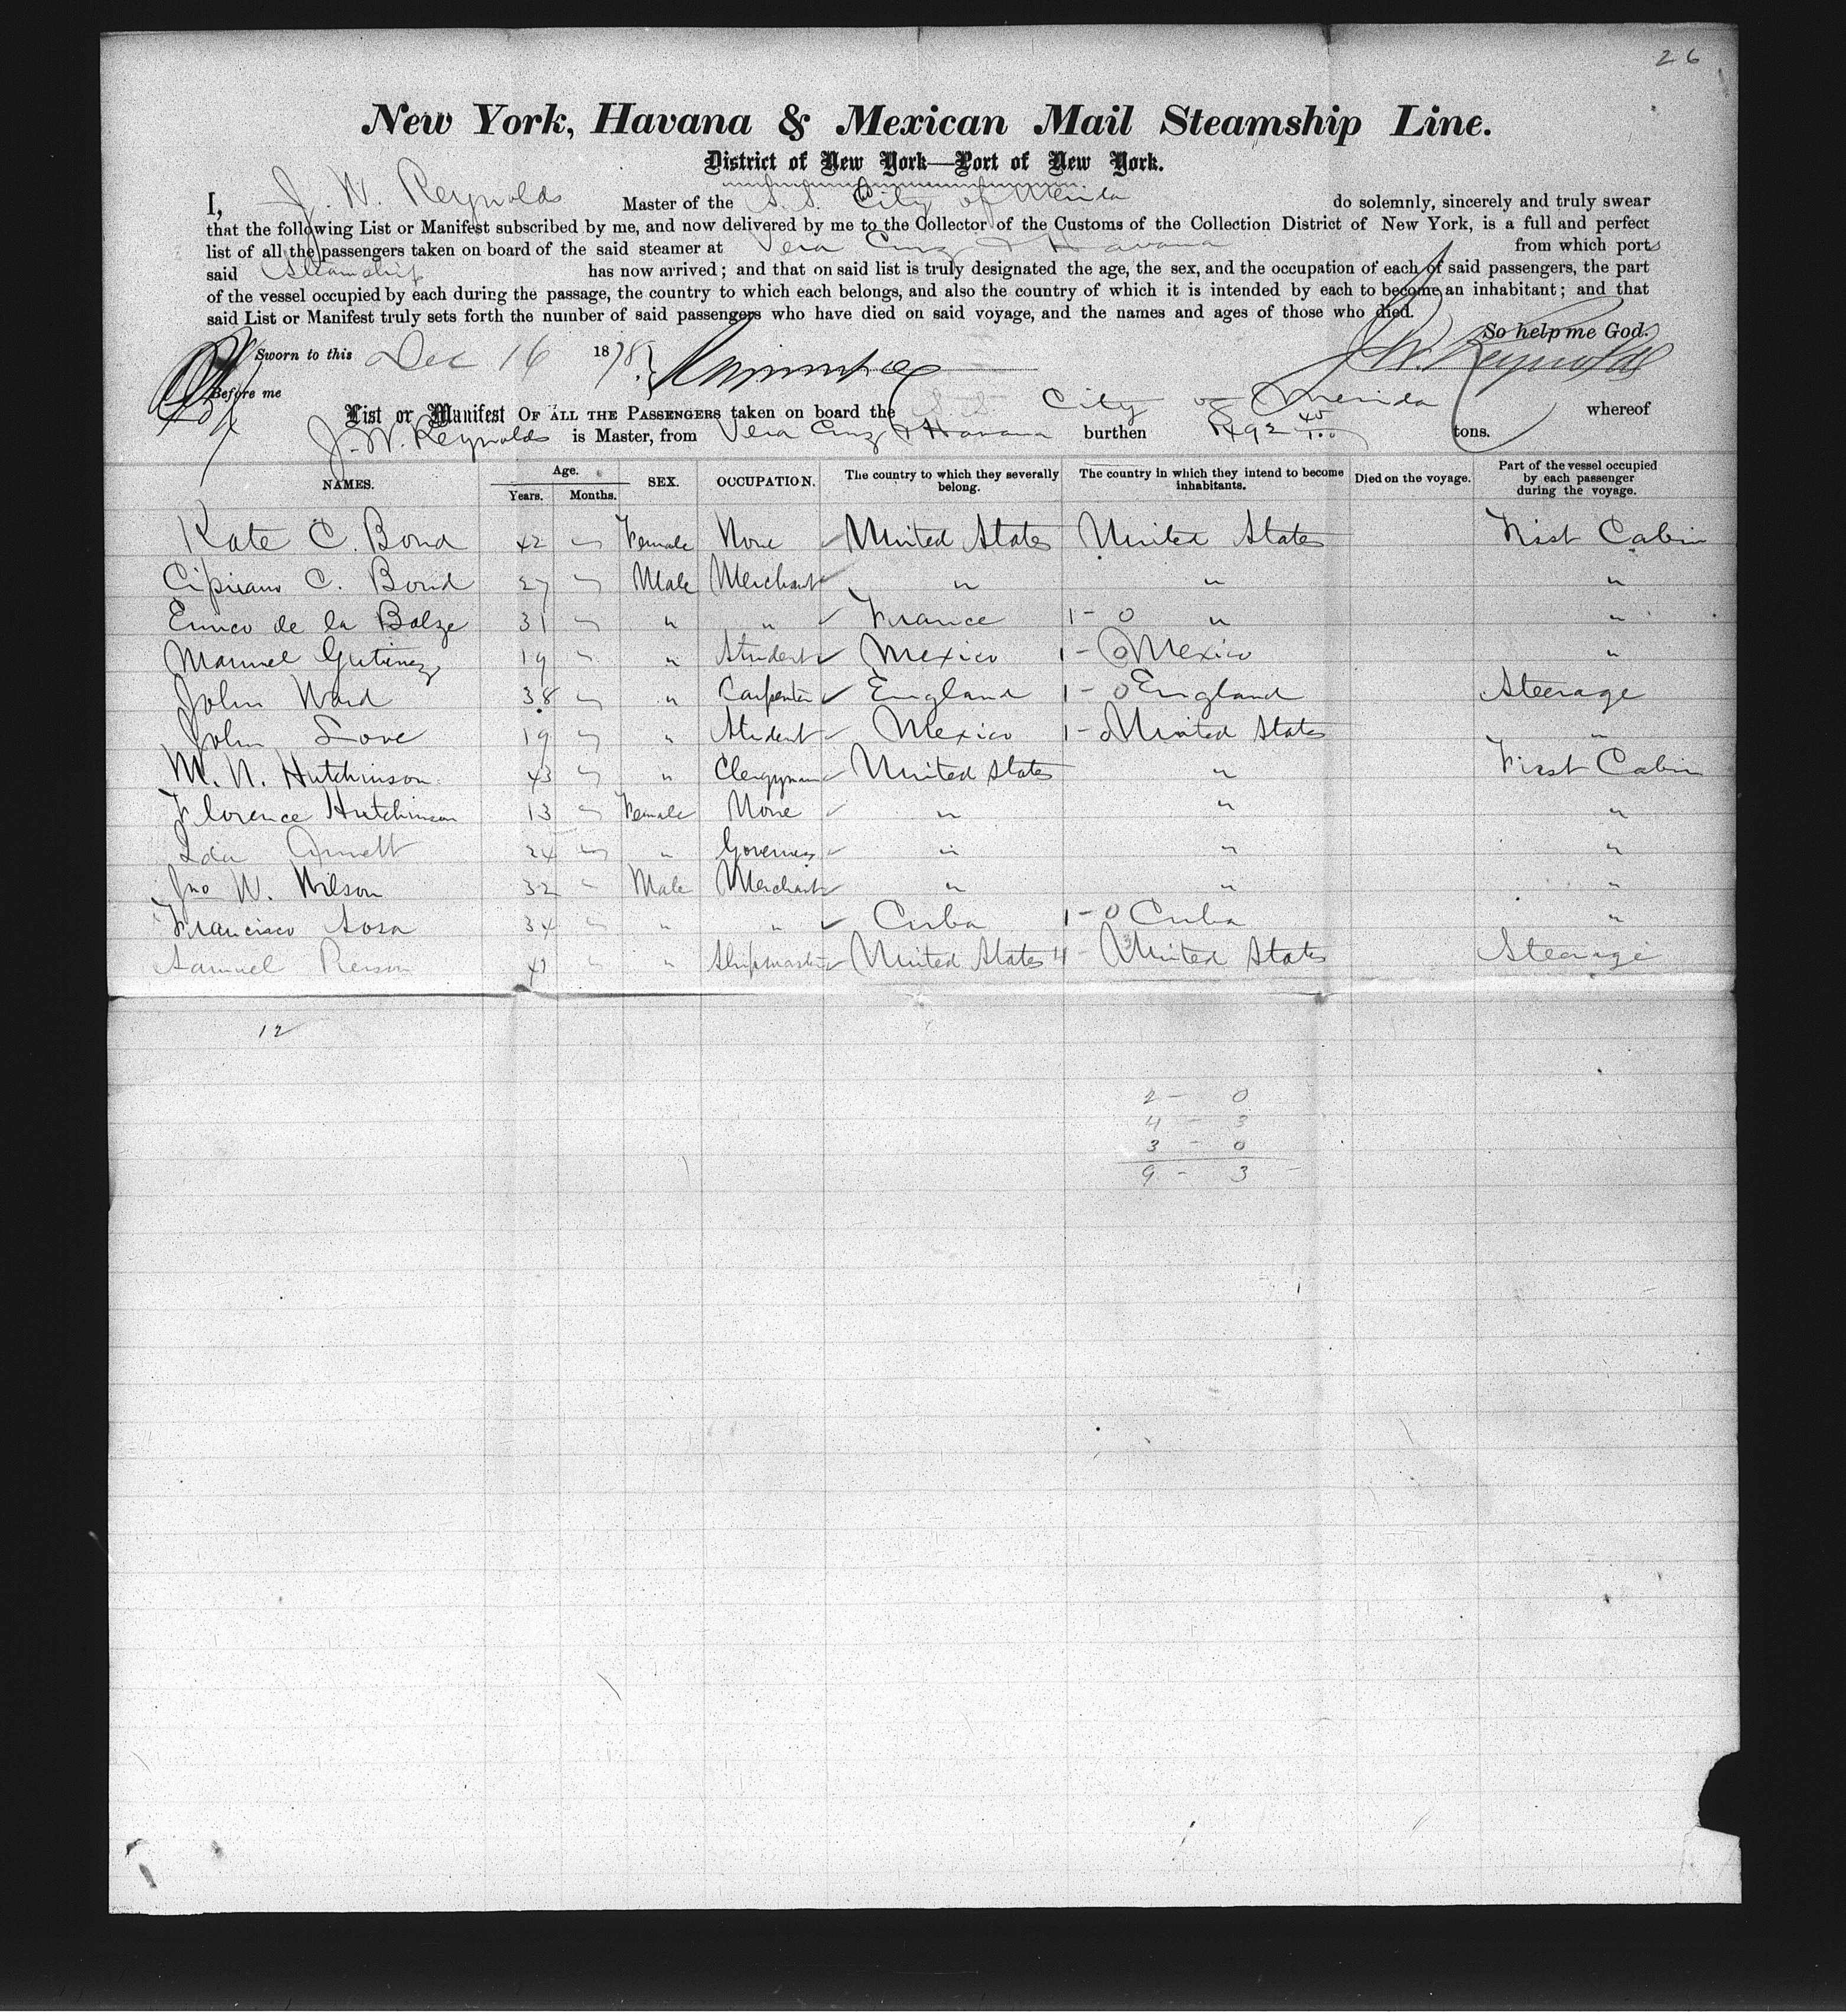 26
New York, Havana & Mexican Mail Steamship Line.
District of New York—Port of New York.
I, J. W. Reynolds Master of the S. S. City of Merida do solemnly, sincerely and truly swear
that the following List or Manifest subscribed by me, and now delivered by me to the Collector of the Customs of the Collection District of New York, is a full and perfect
list of all the passengers taken on board of the said steamer at Vera Cruz & Havana from which ports
said Steamship has now arrived; and that on said list is truly designated the age, the sex, and the occupation of each of said passengers, the part
of the vessel occupied by each during the passage, the country to which each belongs, and also the country of which it is intended by each to become an inhabitant; and that
said List or Manifest truly sets forth the number of said passengers who have died on said voyage, and the names and ages of those who died.
So help me God.
Sworn to this Dec 16 1878 J. W. Reynolds
Before me
List or Manifest OF ALL THE PASSENGERS taken on board the S. S. City of Merida whereof
J. W. Reynolds is Master, from Vera Cruz & Havana burthen 1492 45/100 tons.
NAMES. Age. Years. Months. SEX. OCCUPATION. The country to which they severally belong. The country in which they intend to become inhabitants. Died on the voyage. Part of the vessel occupied by each passenger during the voyage.
Kate C. Bond 42 Female None United States United States First Cabin
Cipriano C. Bond 27 Male Merchant " " "
Enrico de la Balze 31 " " France 1-0 " "
Manuel Gutierrez 19 " Student Mexico 1-0 Mexico "
John Ward 38 " Carpenter England 1-0 England Steerage
John Love 19 " Student Mexico 1-0 United States "
M. N. Hutchinson 43 " Clergyman United States " First Cabin
Florence Hutchinson 13 Female None " " "
Ida 24 " Governess " " "
Jno W. Wilson 32 Male Merchant " " "
Francisco Sosa 34 " " Cuba 1-0 Cuba "
Samuel 47 " Shipmaster United States 4-3 United States Steerage
12
2 - 0
4 - 3
3 - 0
9 - 3